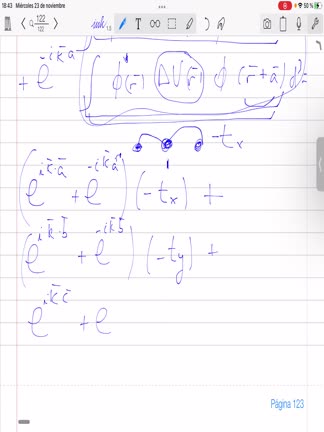 18:43 Miércoles 23 de noviembre 50 %
122
122
+ e^{-i k̄ ā} ∫ φ(r̄) ΔU(r̄) φ (r̄+ā) d³ =
-t_x
(e^{i k̄·ā} + e^{-i k̄ ā}) (-t_x) +
(e^{i k̄·b̄} + e^{-i k̄ b̄}) (-t_y) +
e^{i k̄ c̄} + e
Página 123